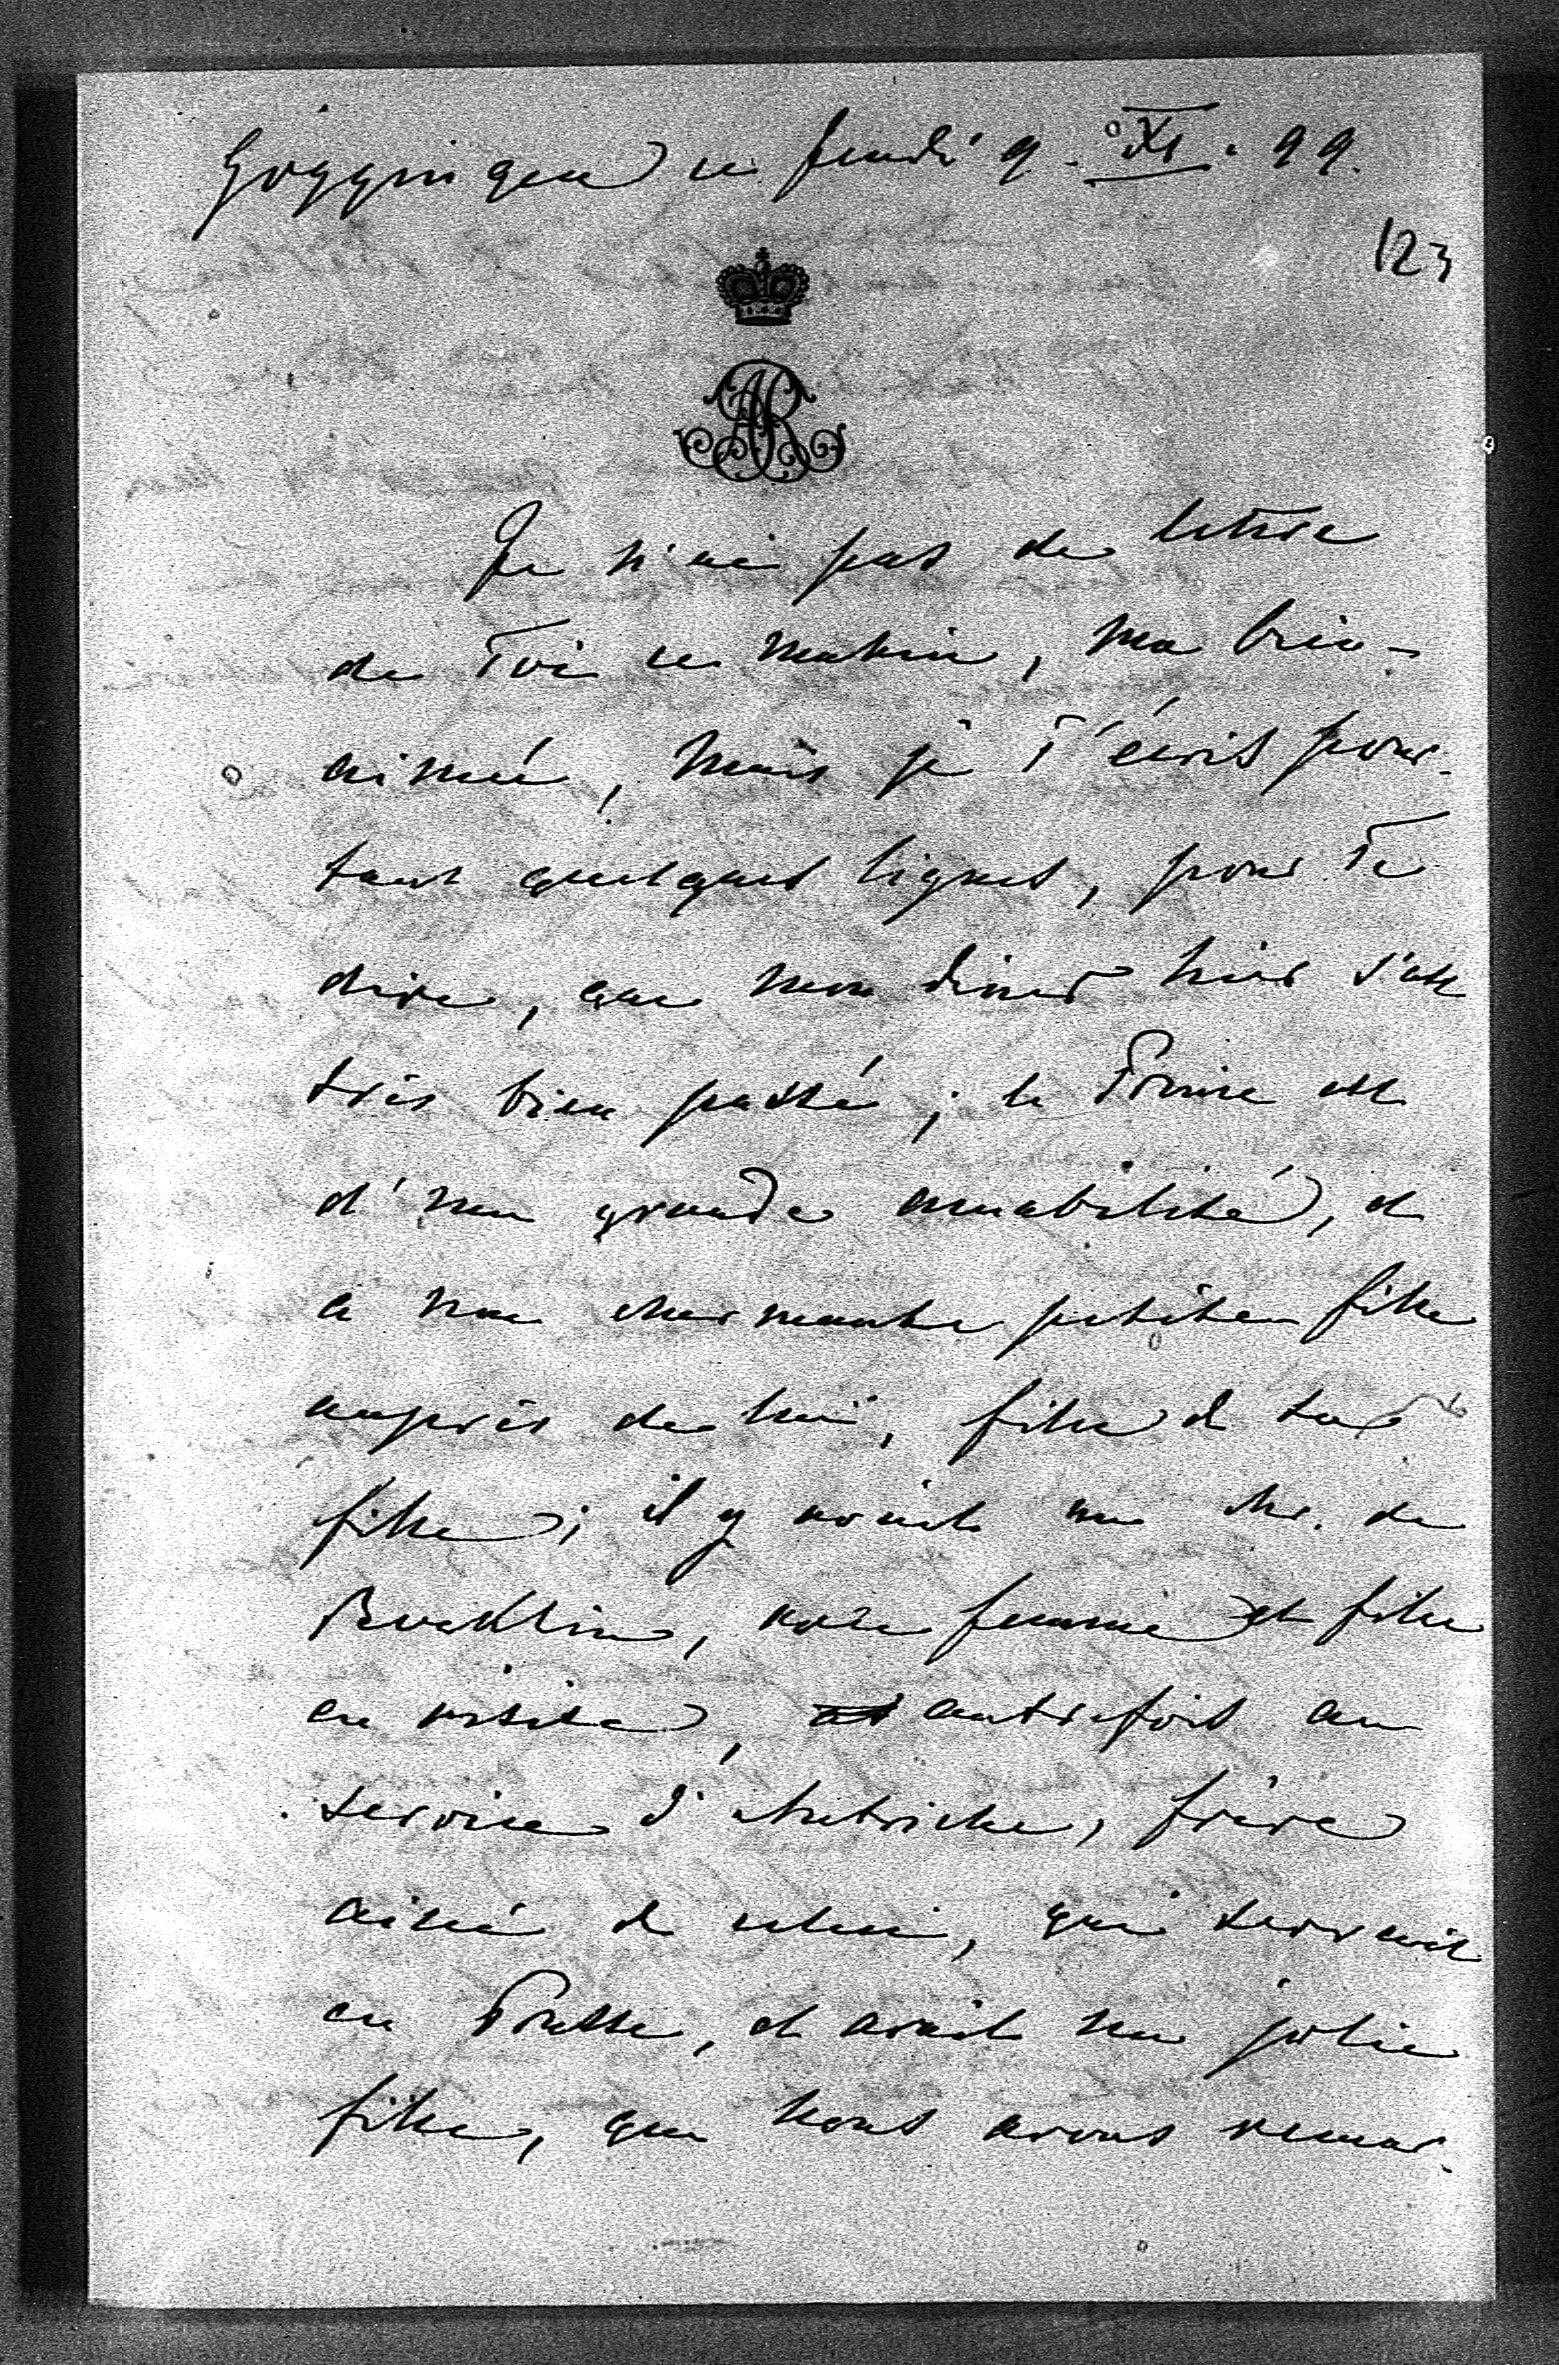 Göggingen ce jeudi 9. XI. 99.
123
AR
Je n'ai pas de lettre
de Toi ce matin, ma bien-
aimée, mais je T'écris pour-
tant quelques lignes, pour Te
dire, que mon diner hier s'est
très bien passé; le Prince est
d'une grande amabilité, et
a une charmante petite fille
auprès de lui, fille de sa
fille; il y avait un Mr. de
Boecklin, avec femme et fille
en visite, autrefois au
service d'Autriche, frère
ainé de celui, qui servait
en Prusse, et avait une jolie
fille, que nous avons remar-